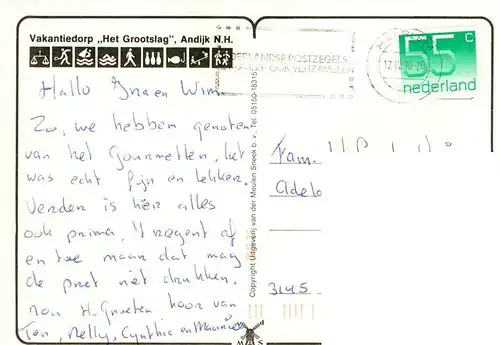 Vakantiedorp „Het Grootslag", Andijk N.H.
Hallo Ina en Wim
Zo, we hebben genoten
van het Gourmetten, het
was echt fijn en lekker.
Verder is hier alles
ook prima, 't regent af
en toe maar dat mag
de pret niet drukken.
H. Groeten hoor van
Ton, Nelly, Cynthia en
Copyright Uitgeverij van der Meulen Sneek b.v. Tel. 05150-18315
NEDERLANDSE POSTZEGELS
OOK VERZAMELEN
12.10.90-20
55 c
nederland
Fam.
Adelo
3145